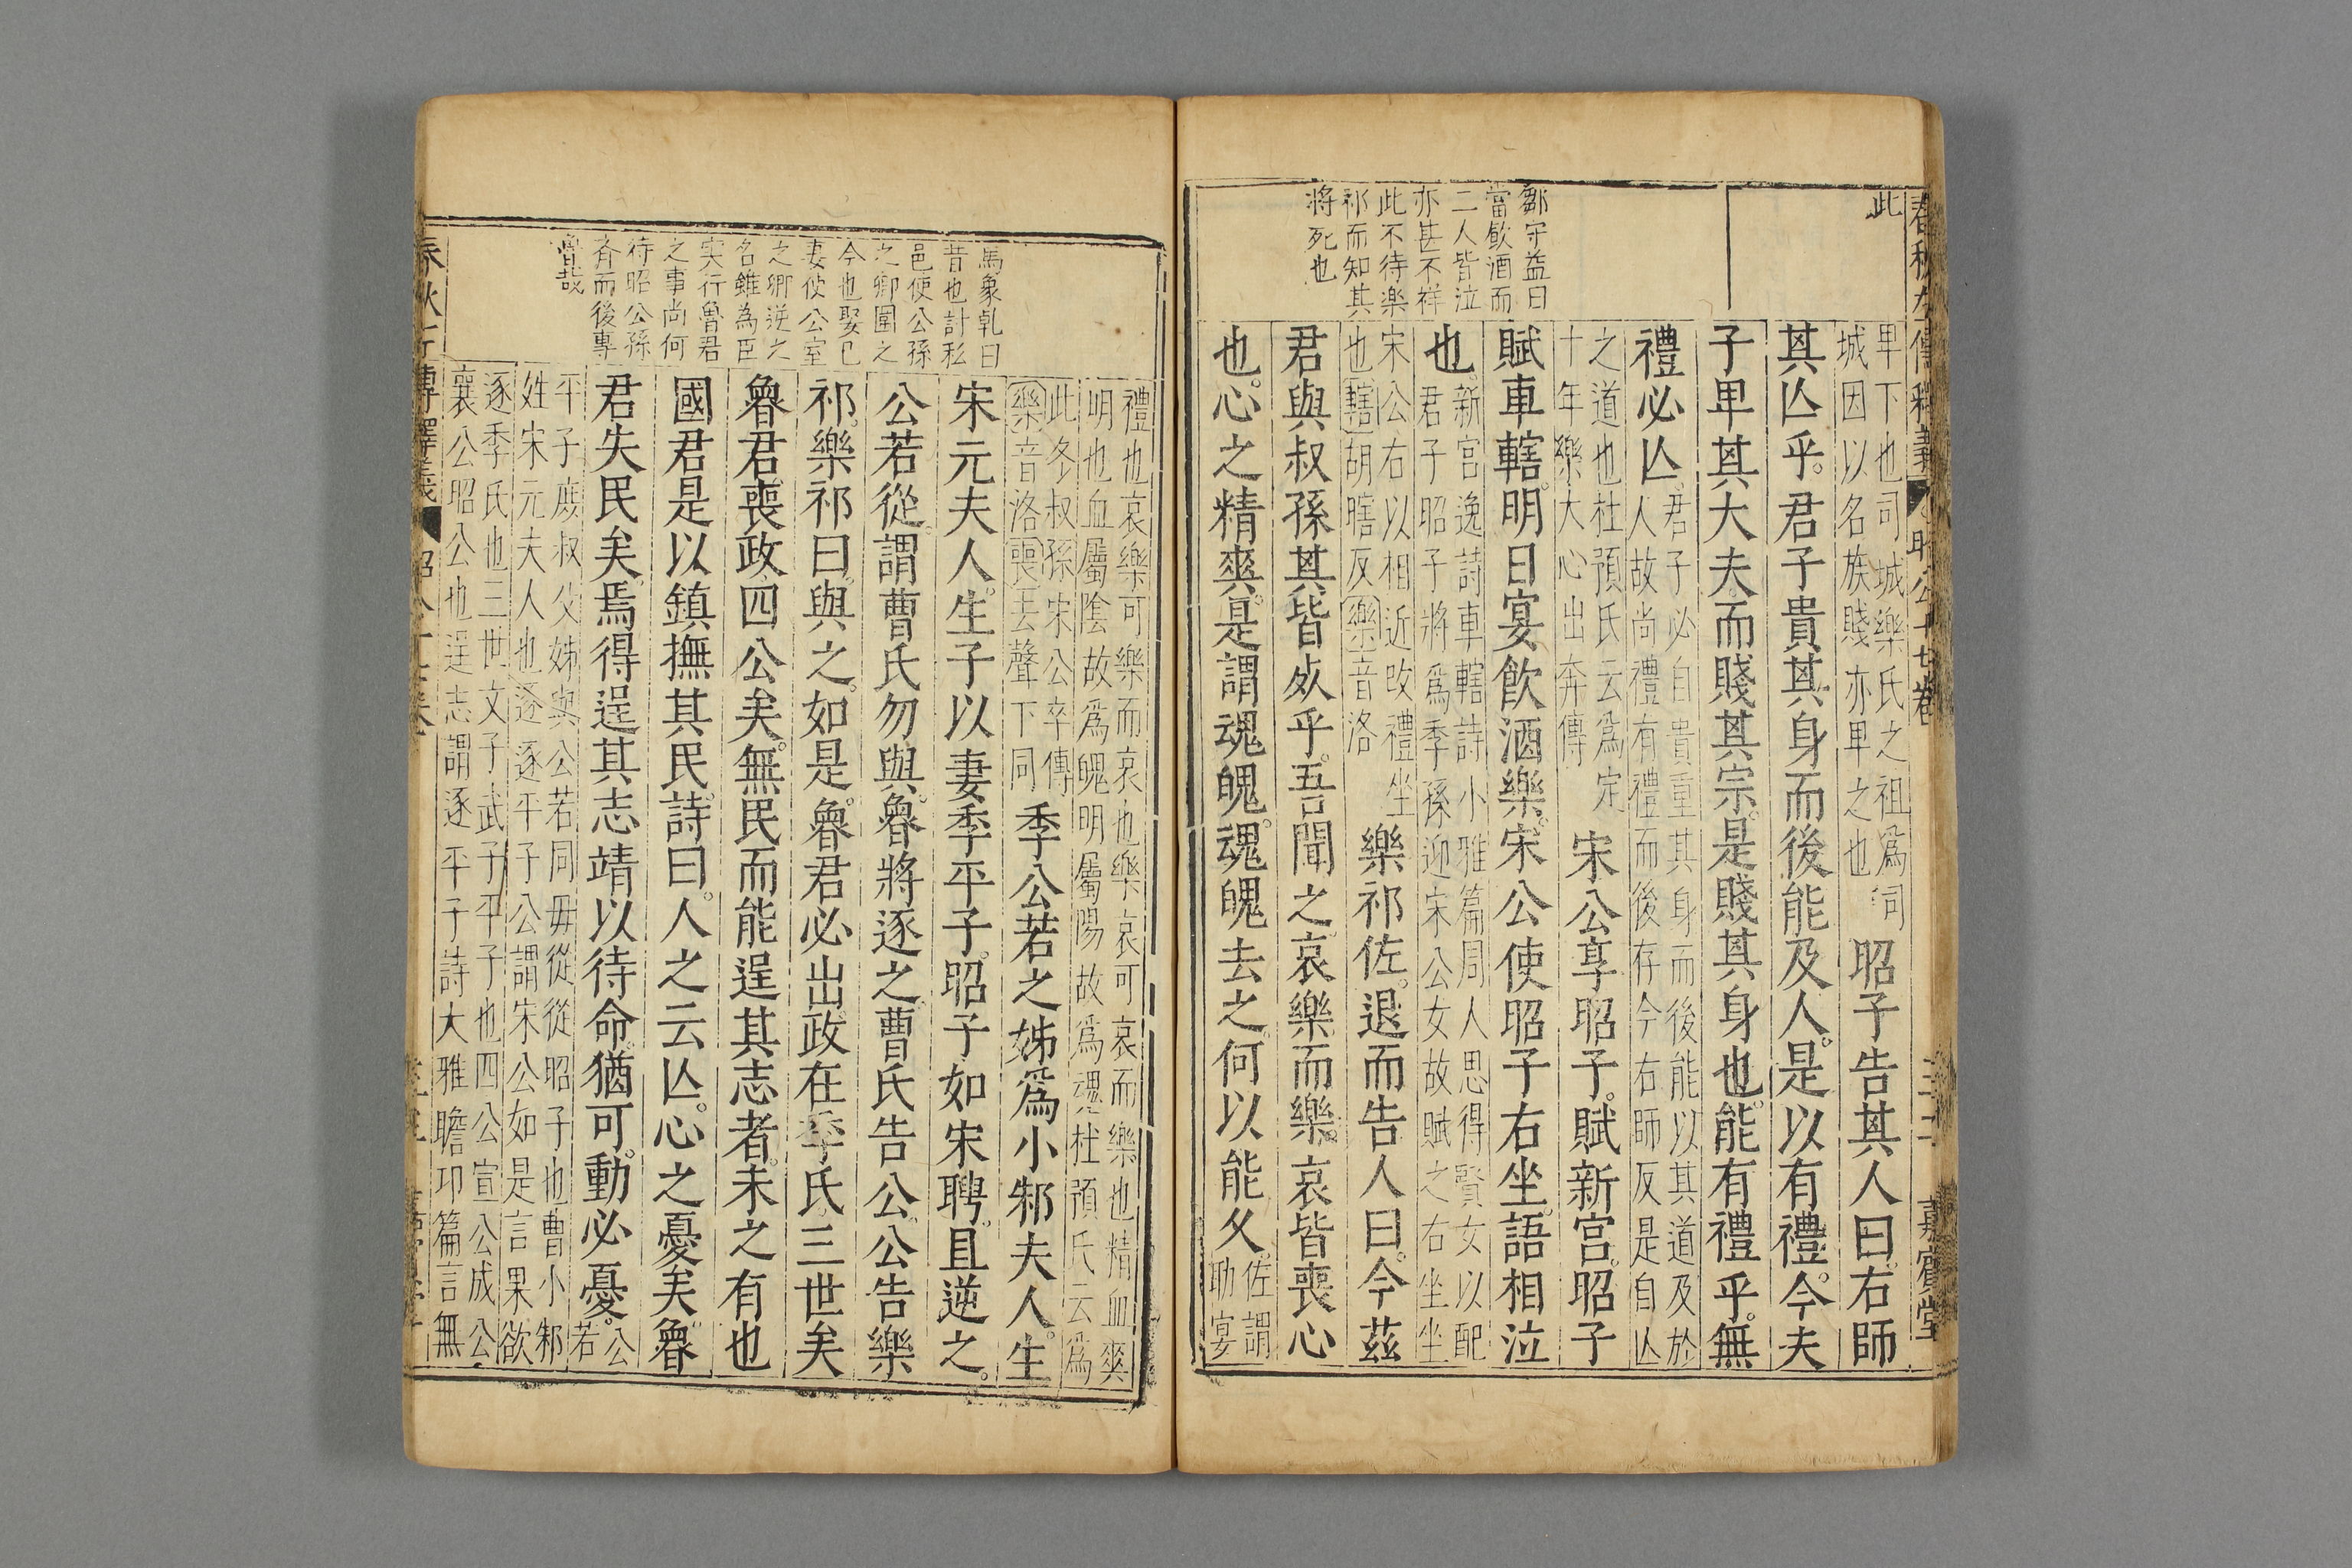 此
鄒守益曰
當飲酒而
二人皆泣
亦甚不祥
此不待樂
祁而知其
將死也
卑下也司城樂氏之祖爲司
城因以名族賤亦卑之也
昭子告其人曰右師
其亾乎君子貴其身而後能及人是以有禮今夫
子卑其大夫而賤其宗是賤其身也能有禮乎無
禮必亾
君子必自貴重其身而後能以其道及於
人故尚禮有禮而後存今右師反是自亾
之道也杜預氏云爲定
十年樂大心出奔傳
宋公享昭子賦新宮昭子
賦車轄明日宴飲酒樂宋公使昭子右坐語相泣
也
新宮逸詩車轄詩小雅篇周人思得賢女以配
君子昭子將爲季孫迎宋公女故賦之右坐坐
宋公右以相近改禮坐
也轄胡瞎反樂音洛
樂祁佐退而告人曰今茲
君與叔孫其皆死乎吾聞之哀樂而樂哀皆喪心
也心之精爽是謂魂魄魂魄去之何以能久
佐謂
助宴
馬象乹曰
昔也計私
邑使公孫
之卿圍之
今也娶己
妻使公室
之卿逆之
名雖為臣
実行魯君
之事尚何
待昭公孫
斉而後專
魯哉
禮也哀樂可樂而哀也樂哀可哀而樂也精血爽
明也血屬陰故爲魄明屬陽故爲魂杜預氏云爲
此冬叔孫宋公卒傳
樂音洛喪去聲下同
季公若之姊爲小邾夫人生
宋元夫人生子以妻季平子昭子如宋聘且逆之
公若從謂曹氏勿與魯將逐之曹氏告公公告樂
祁樂祁曰與之如是魯君必出政在季氏三世矣
魯君喪政四公矣無民而能逞其志者未之有也
國君是以鎮撫其民詩曰人之云亾心之憂矣魯
君失民矣焉得逞其志靖以待命猶可動必憂
公
若
平子庶叔父姊與公若同毋從從昭子也曹小邾
姓宋元夫人也逐逐平子公謂宋公如是言果欲
逐季氏也三世文子武子平子也四公宣公成公
襄公昭公也逞志謂逐平子詩大雅瞻卬篇言無